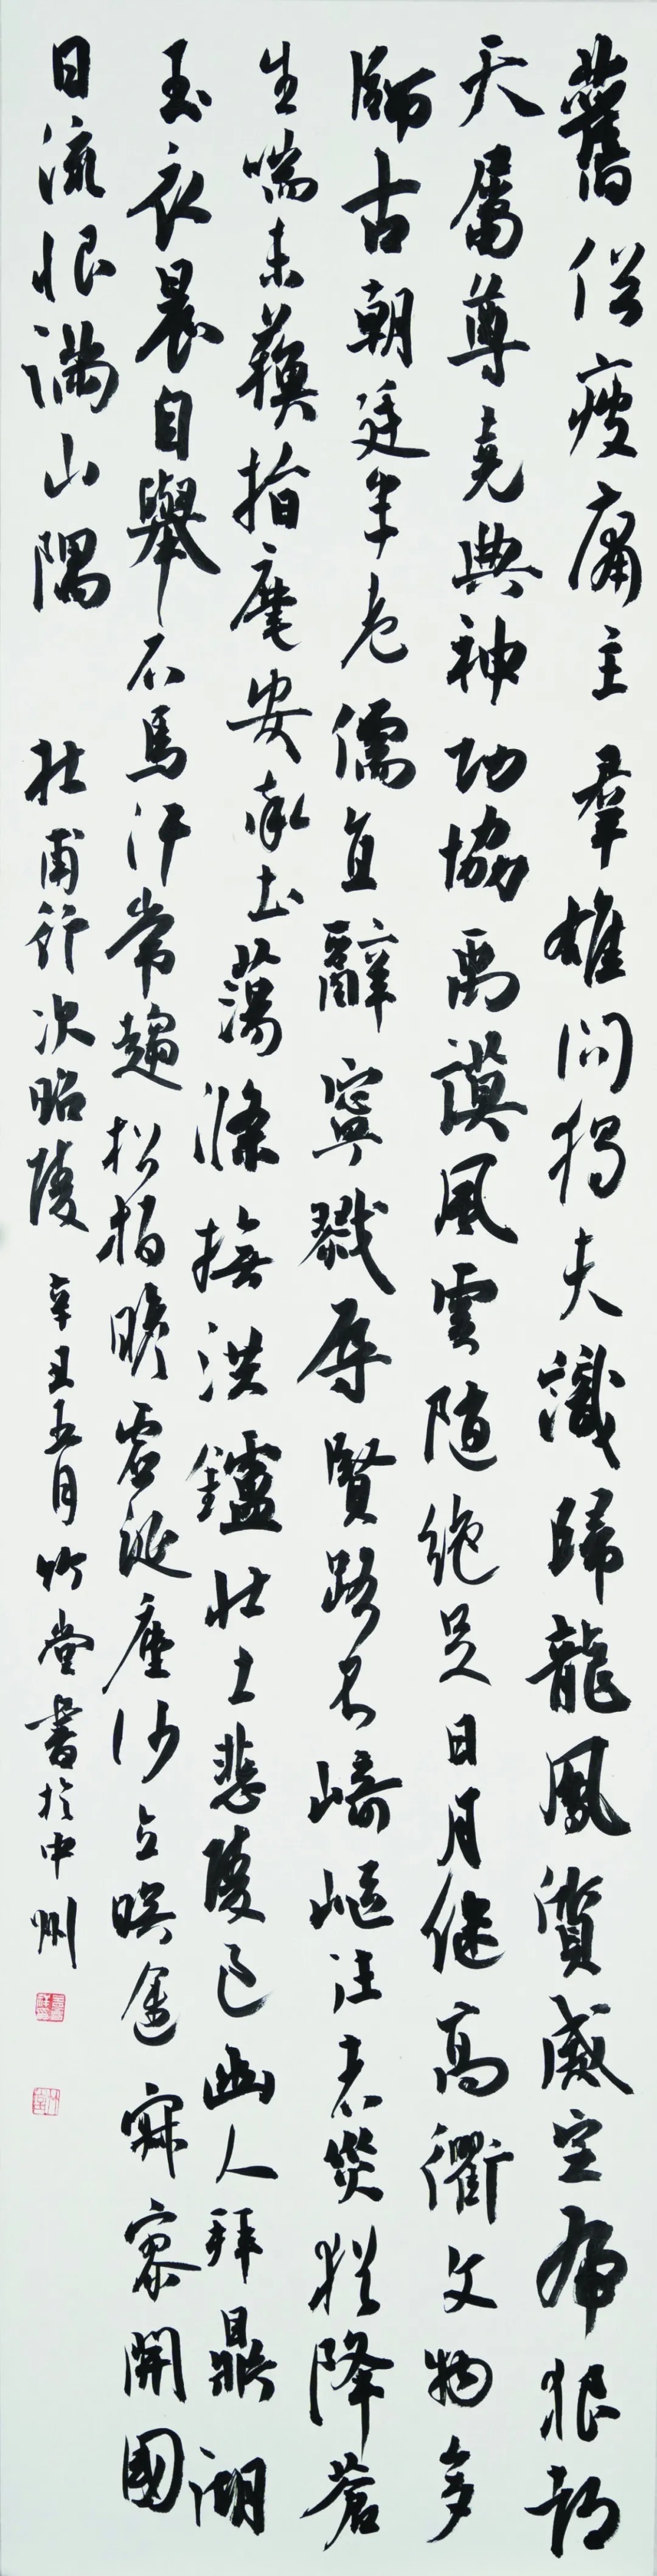 舊俗疲庸主羣雄問獨夫讖歸龍鳳質威定虎狼都
天屬尊堯典神功協禹謨風雲隨絕足日月繼高衢文物多
師古朝廷半老儒直辭寧戮辱賢路不崎嶇往者災猶降蒼
生喘未蘇指麾安率土蕩滌撫洪鑪壯士悲陵邑幽人拜鼎湖
玉衣晨自舉石馬汗常趨松柏瞻虛殿塵沙立暝途寂寥開國
日流恨滿山隅 杜甫行次昭陵 辛丑五月竹堂書於中州